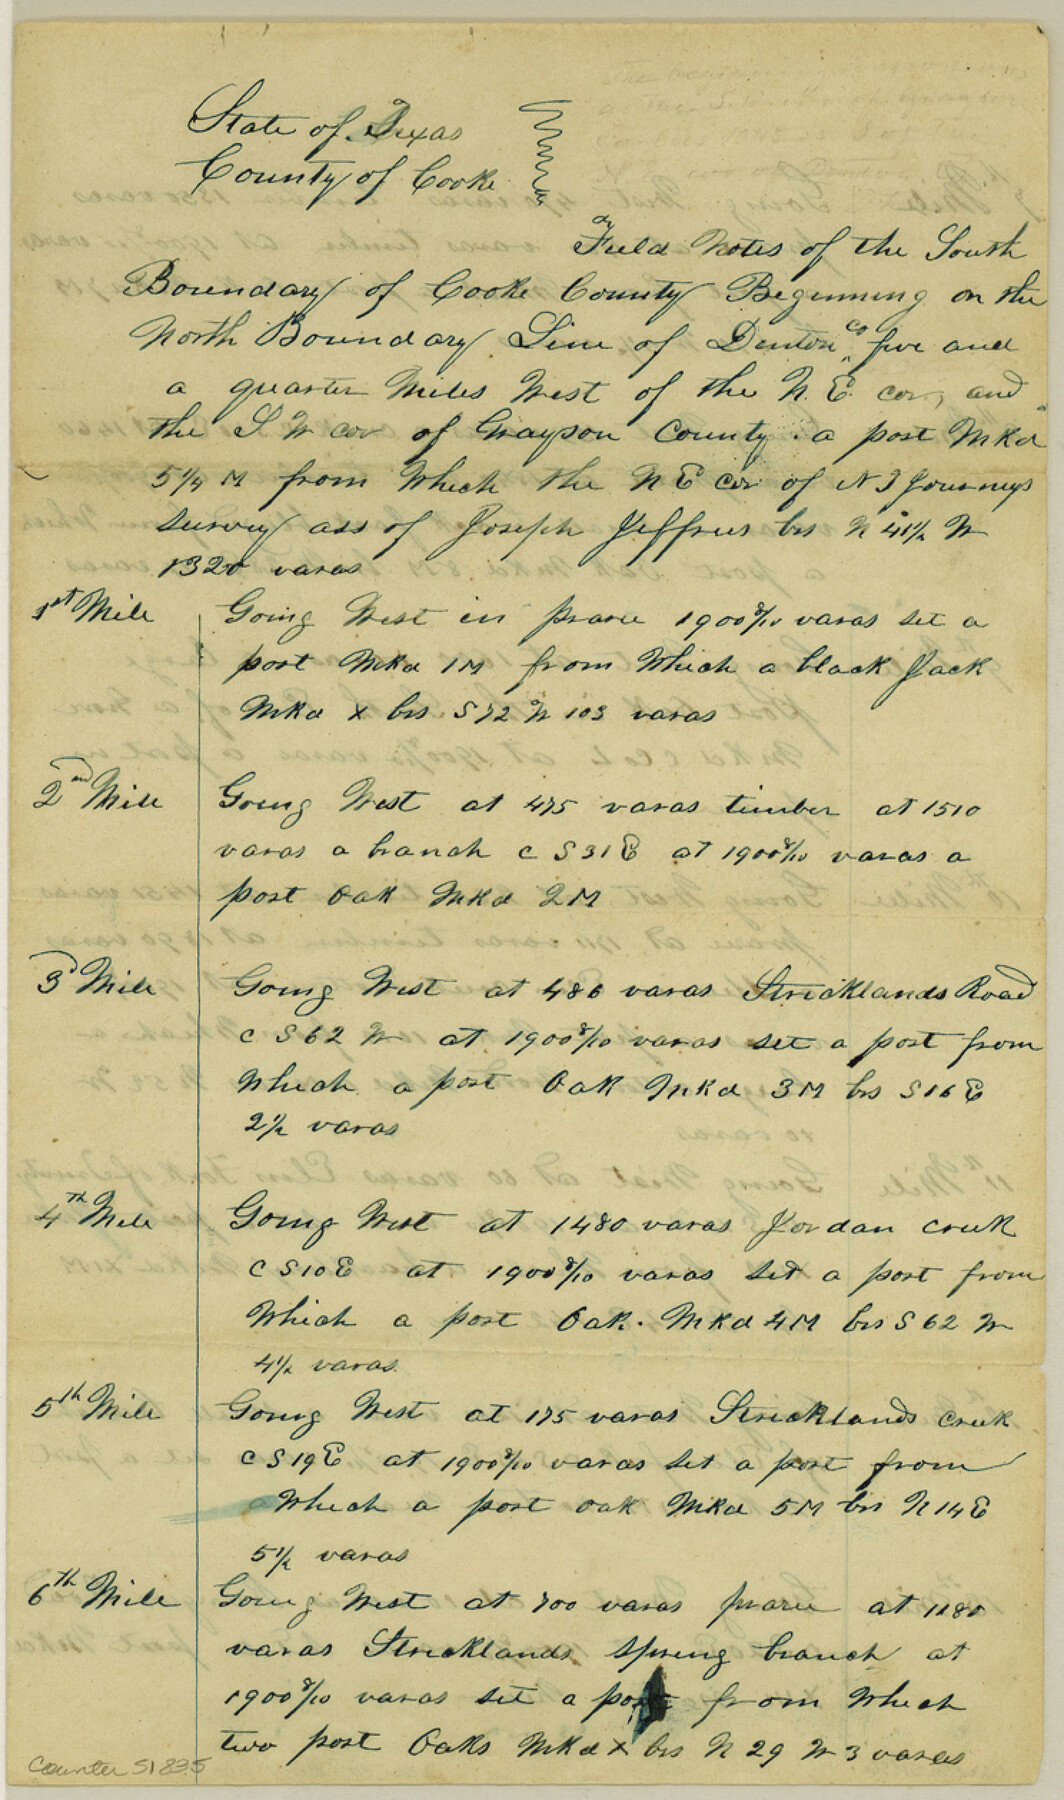 State of Texas
County of Cooke
Field Notes of the South
Boundary of Cooke County Beginning on the
North Boundary Line of Denton Co five and
a quarter Miles West of the N. E. cor, and
the S W cor of Grayson County. a post Mkd
5¼ M from Which the N E cor of N J Journeys
Survey ass of Joseph Jeffries brs N 41½ W
1320 varas
1st Mile Going West in prarie 1900 8/10 varas set a
post Mkd 1M from Which a black Jack
Mkd X brs S 72 W 103 varas
2nd Mile Going West at 475 varas timber at 1510
varas a branch c S 31 E at 1900 8/10 varas a
post Oak Mkd 2M
3d Mile Going West at 486 varas Stricklands Road
c S 62 W at 1900 8/10 varas set a post from
Which a post Oak Mkd 3M brs S 16 E
2½ varas
4th Mile Going West at 1480 varas Jordan creek
c S 10 E at 1900 8/10 varas set a post from
Which a post Oak. Mkd 4M brs S 62 W
4½ varas
5th Mile Going West at 175 varas Stricklands creek
c S 19 E at 1900 8/10 varas set a post from
Which a post oak Mkd 5M brs N 14 E
5½ varas
6th Mile Going West at 700 varas prarie at 1180
varas Stricklands Spring branch at
1900 8/10 varas set a post from Which
two post Oaks Mkd X brs N 29 W 3 varas
Counter 51835